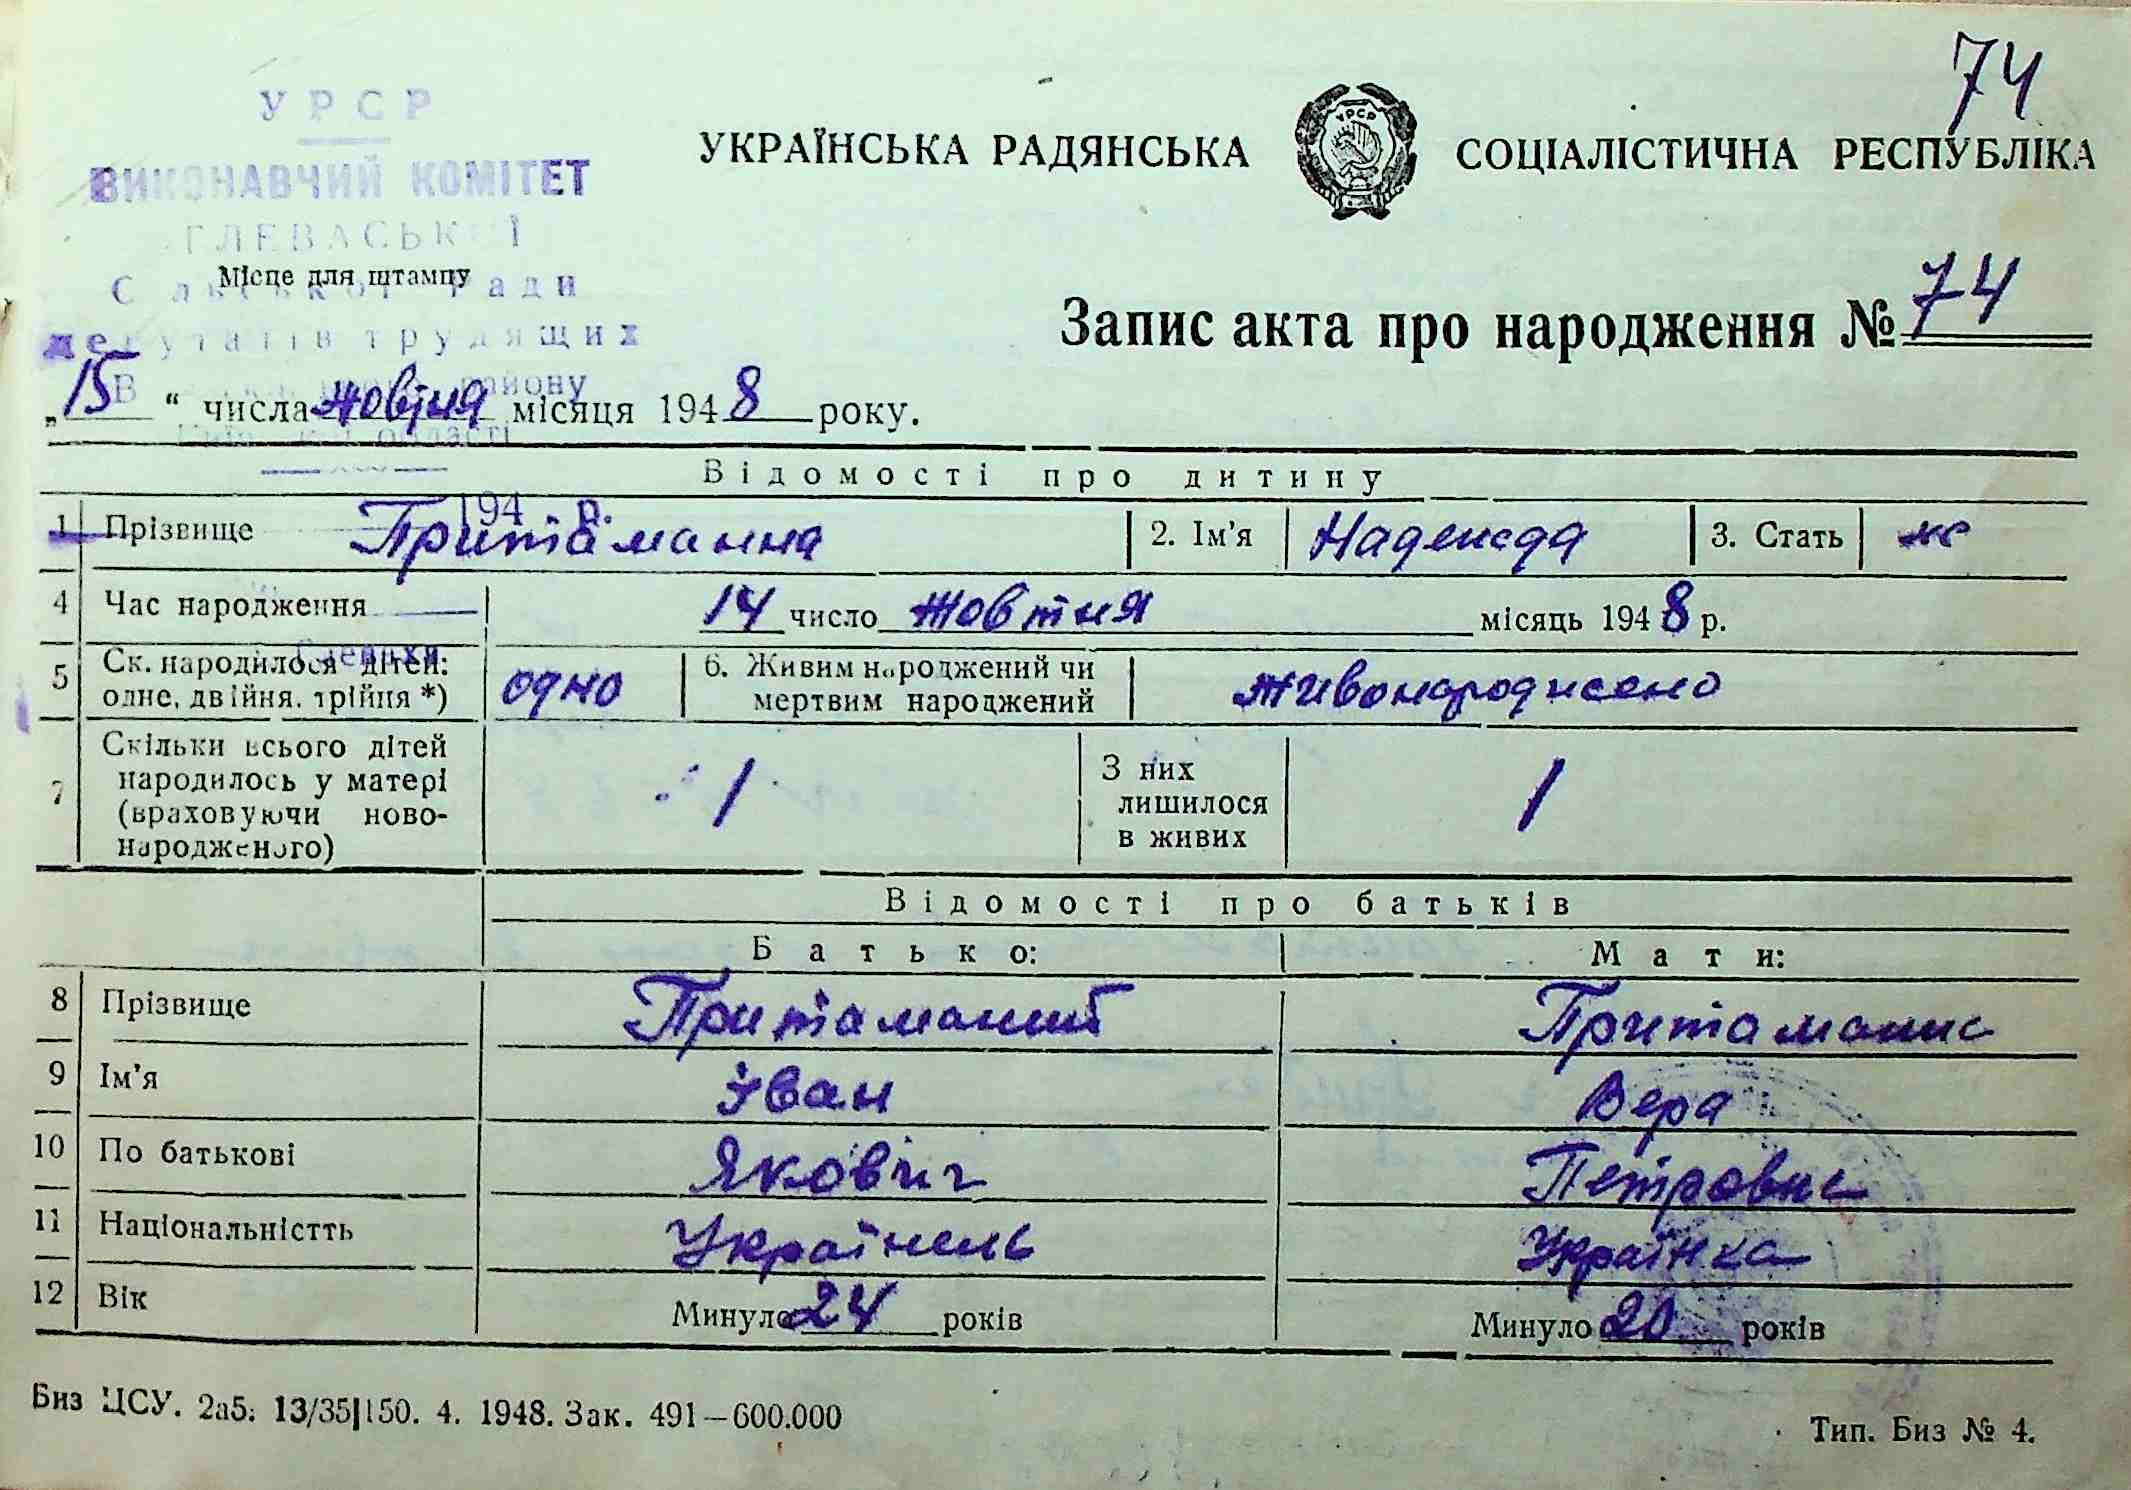 74
УРСР
ВИКОНАВЧИЙ КОМІТЕТ
ГЛЕВАСЬКОЇ
Сільської ради
депутатів трудящих
району
області
194 р.
УКРАЇНСЬКА РАДЯНСЬКА СОЦІАЛІСТИЧНА РЕСПУБЛІКА
УРСР
Місце для штампу
Запис акта про народження № 74
„15“ числа жовтня місяця 1948 року.
Відомості про дитину
1 Прізвище Притаманна 2. Ім'я Надежда 3. Стать ж
4 Час народження 14 число жовтня місяць 1948 р.
5 Ск. народилося дітей: одне, двійня, трійня *) одно 6. Живим народжений чи мертвим народжений живонароджено
7 Скільки всього дітей народилось у матері (враховуючи ново-народженого) 1 З них лишилося в живих 1
Відомості про батьків
Батько: Мати:
8 Прізвище Притаманий Притамана
9 Ім'я Іван Вера
10 По батькові Якович Петровна
11 Національністть Українець Українка
12 Вік Минуло 24 років Минуло 20 років
Биз ЦСУ. 2а5. 13/35|150. 4. 1948. Зак. 491—600.000
Тип. Биз № 4.